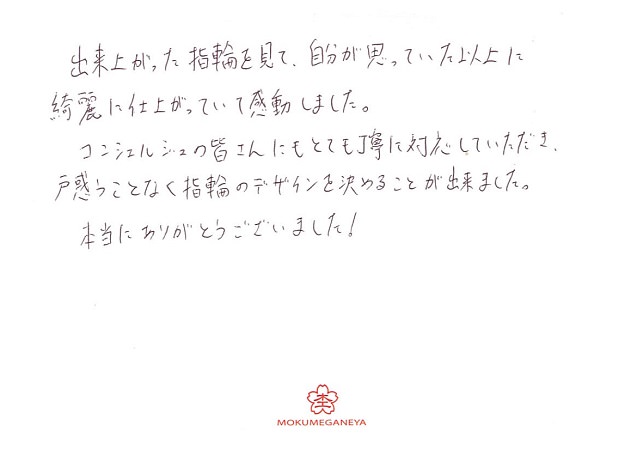 出来上がった指輪を見て、自分が思っていた以上に
綺麗に仕上がっていて感動しました。
コンシェルジュの皆さんにもとても丁寧に対応していただき、
戸惑うことなく指輪のデザインを決めることが出来ました。
本当にありがとうございました!
杢
MOKUMEGANEYA